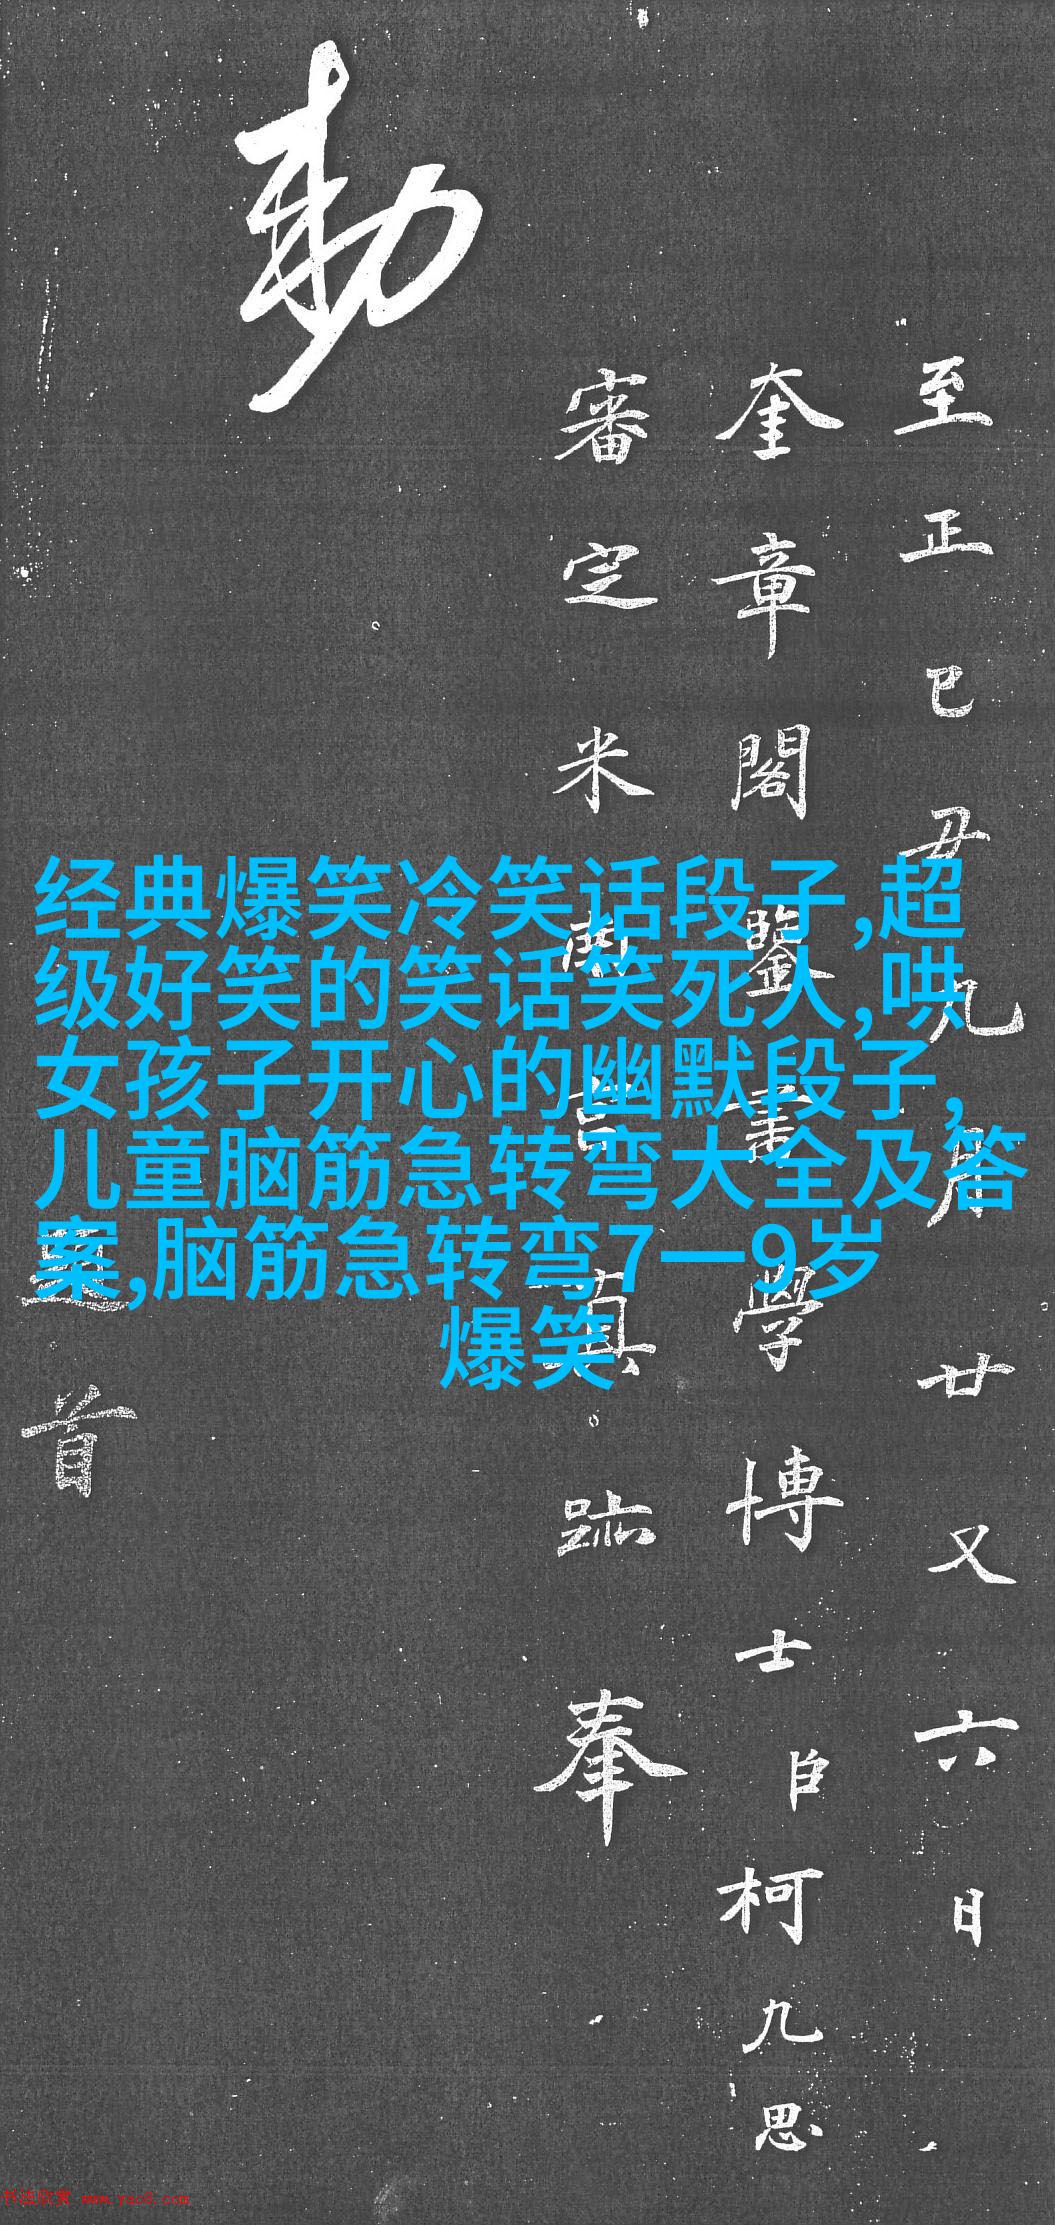 勅
至正已丑九月廿又六日
奎章閣鑒書學博士臣柯九思
審定米南宮真跡奉
題首
经典爆笑冷笑话段子,超
级好笑的笑话笑死人,哄
女孩子开心的幽默段子,
儿童脑筋急转弯大全及答
案,脑筋急转弯7一9岁
爆笑
书法欣赏 www.yac8.com